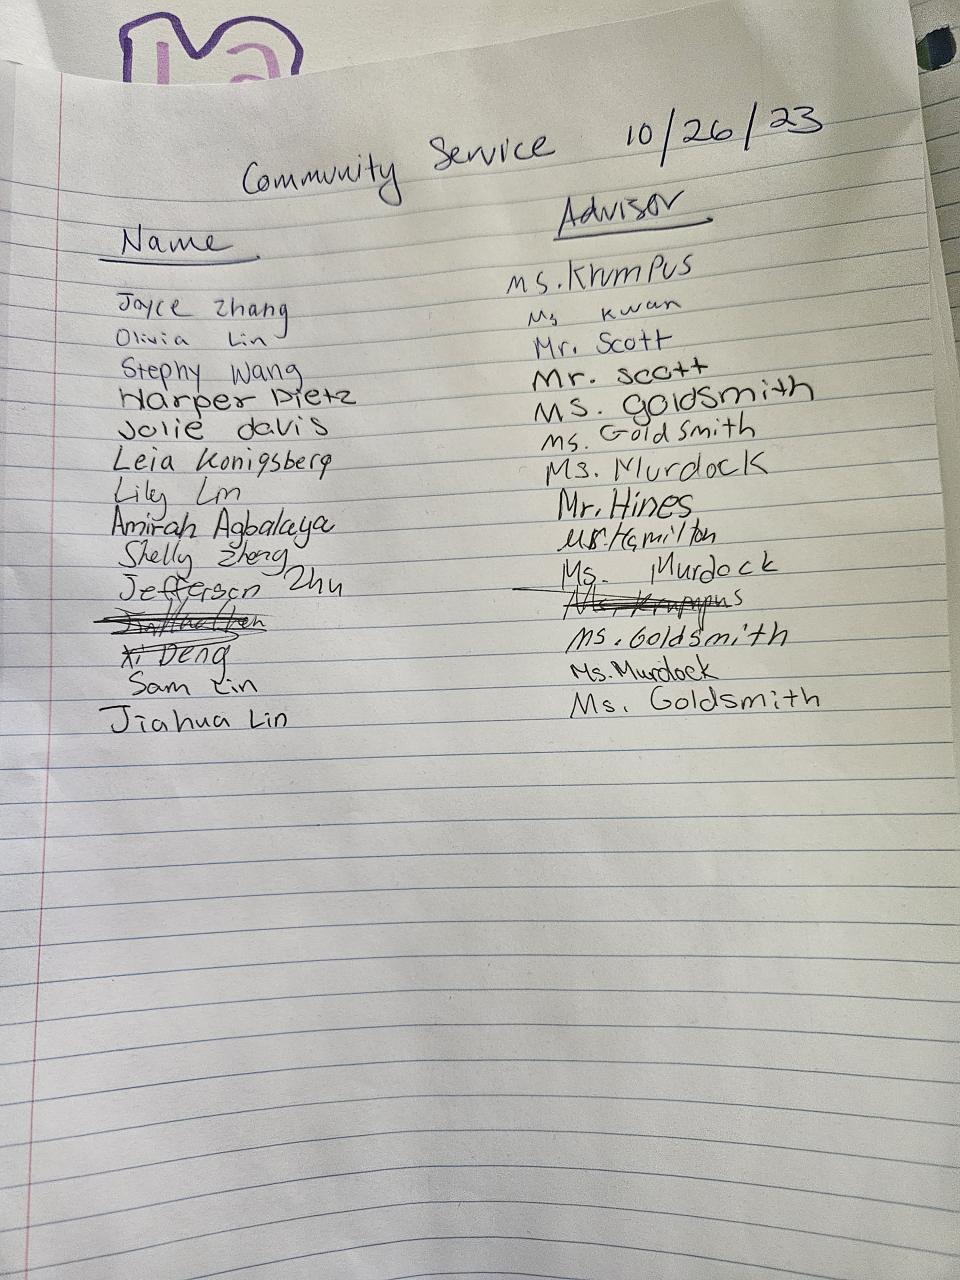 Community Service 10/26/23
Name Advisor
Joyce Zhang Ms. Krumpus
Olivia Lin Ms Kwan
Stephy Wang Mr. Scott
Harper Dietz Mr. Scott
Jolie davis Ms. goldsmith
Leia Konigsberg Ms. Goldsmith
Lily Lin Ms. Murdock
Amirah Agbalaya Mr. Hines
Shelly Zheng Hamilton
Jefferson Zhu Ms. Murdock
Ms. Krumpus
Xi Deng Ms. Goldsmith
Sam Lin Ms. Murdock
Jiahua Lin Ms. Goldsmith